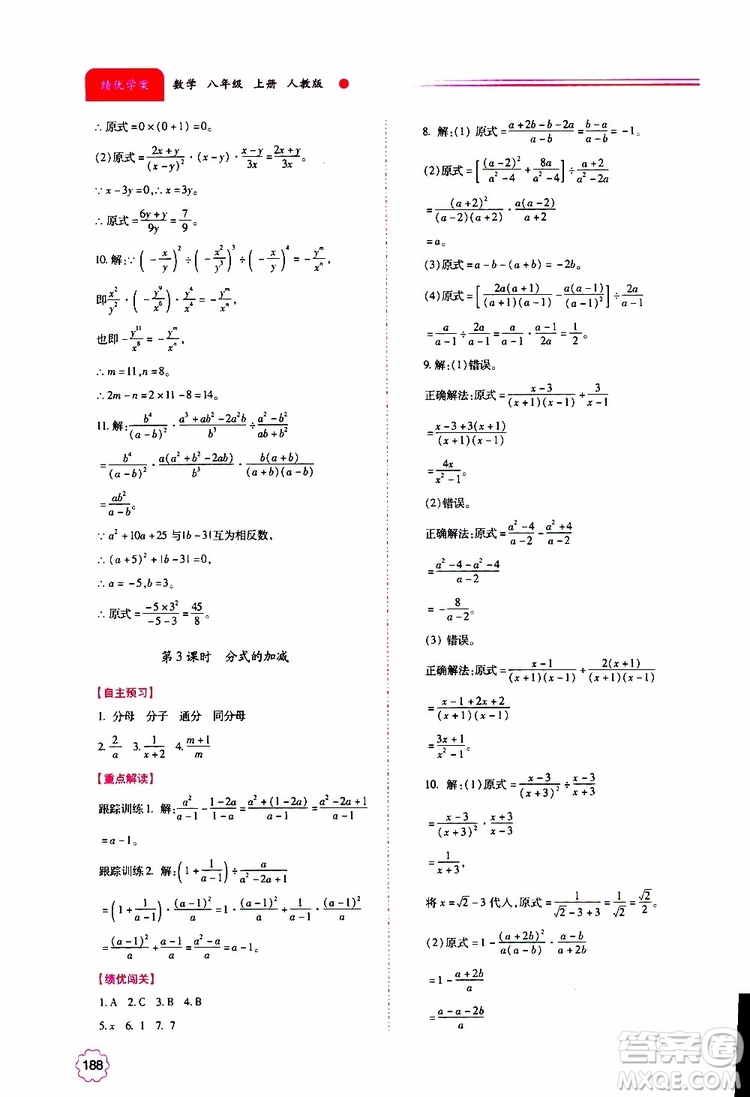 绩优学案 数学 八年级 上册 人教版
∴原式=0×(0+1)=0。
(2)原式=\frac{2x+y}{(x-y)^2}·(x-y)·\frac{x-y}{3x}=\frac{2x+y}{3x}。
∵x-3y=0,∴x=3y。
∴原式=\frac{6y+y}{9y}=\frac{7}{9}。
10.解:∵(-\frac{x}{y})^2÷(-\frac{x^2}{y^3})^3=-\frac{y^m}{x^n},
即\frac{x^2}{y^2}·(-\frac{y^9}{x^6})=-\frac{y^m}{x^n},
也即-\frac{y^{11}}{x^8}=-\frac{y^m}{x^n}。
∴m=11,n=8。
∴2m-n=2×11-8=14。
11.解:\frac{b^4}{(a-b)^2}·\frac{a^3+ab^2-2a^2b}{b^3}÷\frac{a^2-b^2}{ab+b^2}
=\frac{b^4}{(a-b)^2}·\frac{a(a^2+b^2-2ab)}{b^3}·\frac{b(a+b)}{(a+b)(a-b)}
=\frac{ab^2}{a-b}。
∵a^2+10a+25与|b-3|互为相反数,
∴(a+5)^2+|b-3|=0,
∴a=-5,b=3。
∴原式=\frac{-5×3^2}{-5-3}=\frac{45}{8}。
第3课时 分式的加减
【自主预习】
1. 分母 分子 通分 同分母
2.\frac{2}{a} 3.\frac{1}{x+2} 4.\frac{m+1}{m}
【重点解读】
跟踪训练1. 解:\frac{a^2}{a-1}-\frac{1-2a}{1-a}=\frac{a^2+(1-2a)}{a-1}=\frac{a^2-2a+1}{a-1}
=a-1。
跟踪训练2. 解:(1+\frac{1}{a-1})÷\frac{a}{(a-1)^2}
=(1+\frac{1}{a-1})·\frac{(a-1)^2}{a}=1·\frac{(a-1)^2}{a}+\frac{1}{a-1}·\frac{(a-1)^2}{a}
=\frac{(a-1)^2}{a}+\frac{a-1}{a}=\frac{a(a-1)}{a}=a-1。
【绩优闯关】
1.A 2.C 3.B 4.B
5.x 6.1 7.7
188
8. 解:(1) 原式=\frac{a+2b-b-2a}{a-b}=\frac{b-a}{a-b}=-1。
(2)原式=[\frac{(a-2)^2}{a^2-4}+\frac{8a}{a^2-4}]÷\frac{a+2}{a^2-2a}
=\frac{(a+2)^2}{(a-2)(a+2)}·\frac{a(a-2)}{a+2}
=a。
(3)原式=a-b-(a+b)=-2b。
(4)原式=[\frac{2a(a+1)}{(a+1)(a-1)}-\frac{a(a-1)}{(a-1)^2}]÷\frac{2a}{a-1}
=\frac{a}{a-1}÷\frac{2a}{a-1}=\frac{a}{a-1}·\frac{a-1}{2a}=\frac{1}{2}。
9.解:(1)错误。
正确解法:原式=\frac{x-3}{(x+1)(x-1)}+\frac{3}{x-1}
=\frac{x-3+3(x+1)}{(x+1)(x-1)}
=\frac{4x}{x^2-1}。
(2)错误。
正确解法:原式=\frac{a^2-4}{a-2}-\frac{a^2+4}{a-2}
=\frac{a^2-4-a^2-4}{a-2}
=-\frac{8}{a-2}。
(3) 错误。
正确解法:原式=\frac{x-1}{(x+1)(x-1)}+\frac{2(x+1)}{(x+1)(x-1)}
=\frac{x-1+2x+2}{(x+1)(x-1)}
=\frac{3x+1}{x^2-1}。
10. 解:(1)原式=\frac{x-3}{(x+3)^2}÷\frac{x-3}{x+3}
=\frac{x-3}{(x+3)^2}·\frac{x+3}{x-3}
=\frac{1}{x+3},
将x=√2-3代人,原式=\frac{1}{√2-3+3}=\frac{1}{√2}=\frac{√2}{2}。
(2)原式=1-\frac{a(a+2b)}{(a-b)^2}·\frac{a-b}{a}
=1-\frac{a+2b}{a}
=\frac{a-b-a-2b}{a-b}
作业精灵